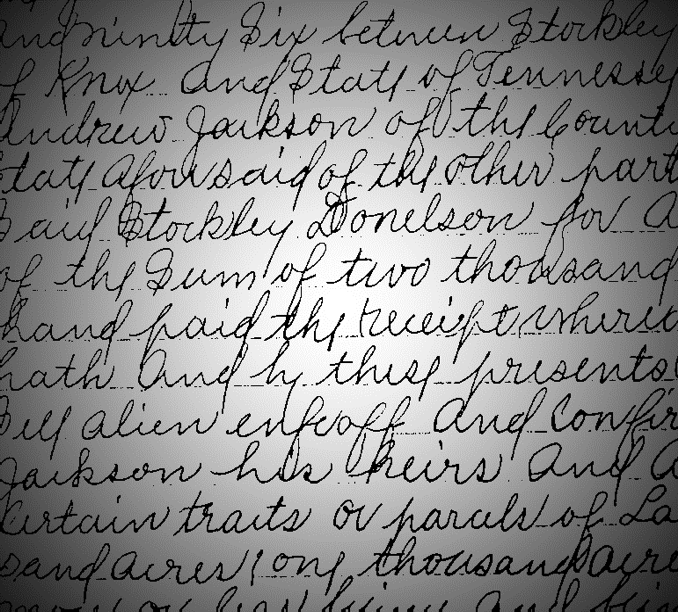 and ninety Six between Stockley
of Knox and State of Tennessee
Andrew Jackson of the Count
State aforesaid of the other part
Said Stockley Donelson for a
of the Sum of two thousand
hand paid the receipt where
hath and by these presents
Sell alien enfeoff and Confir
Jackson his heirs and a
Certain tracts or parcels of La
sand acres, one thousand acre
more or less being and